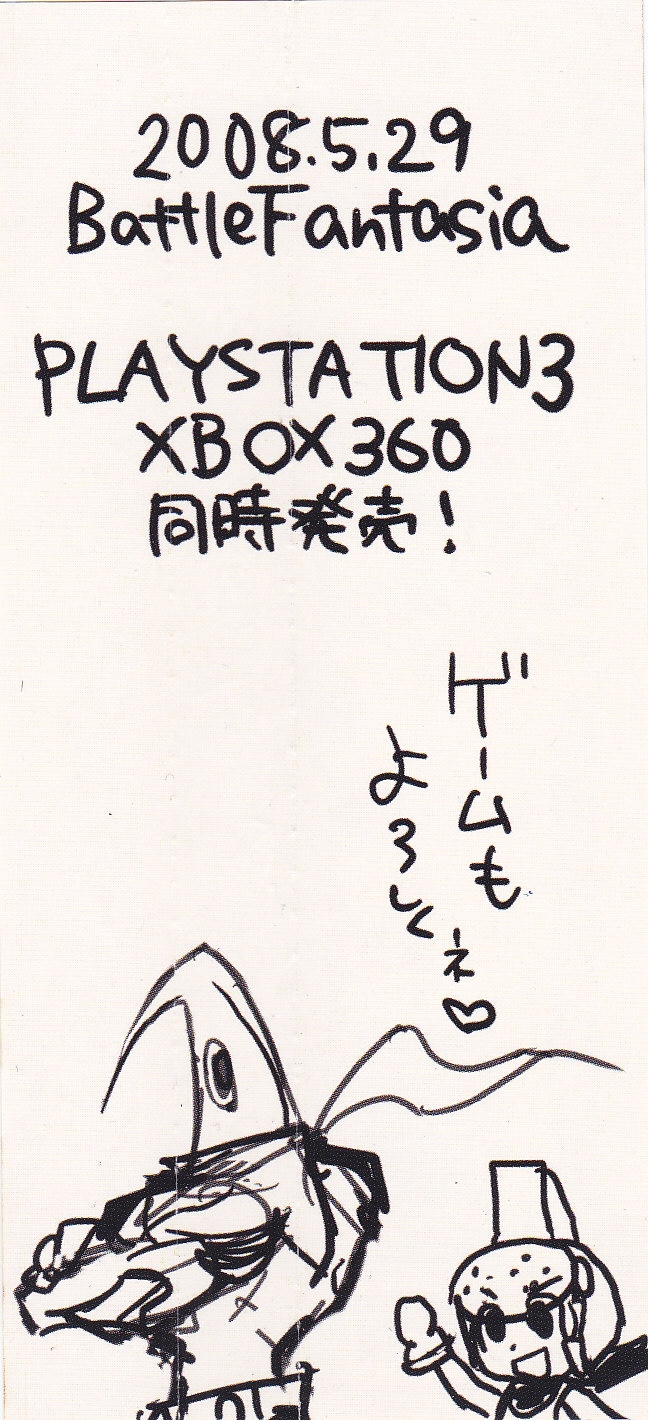 2008.5.29
BattleFantasia
PLAYSTATION3
XBOX360
同時発売!
ゲームも
よろしくネ♡